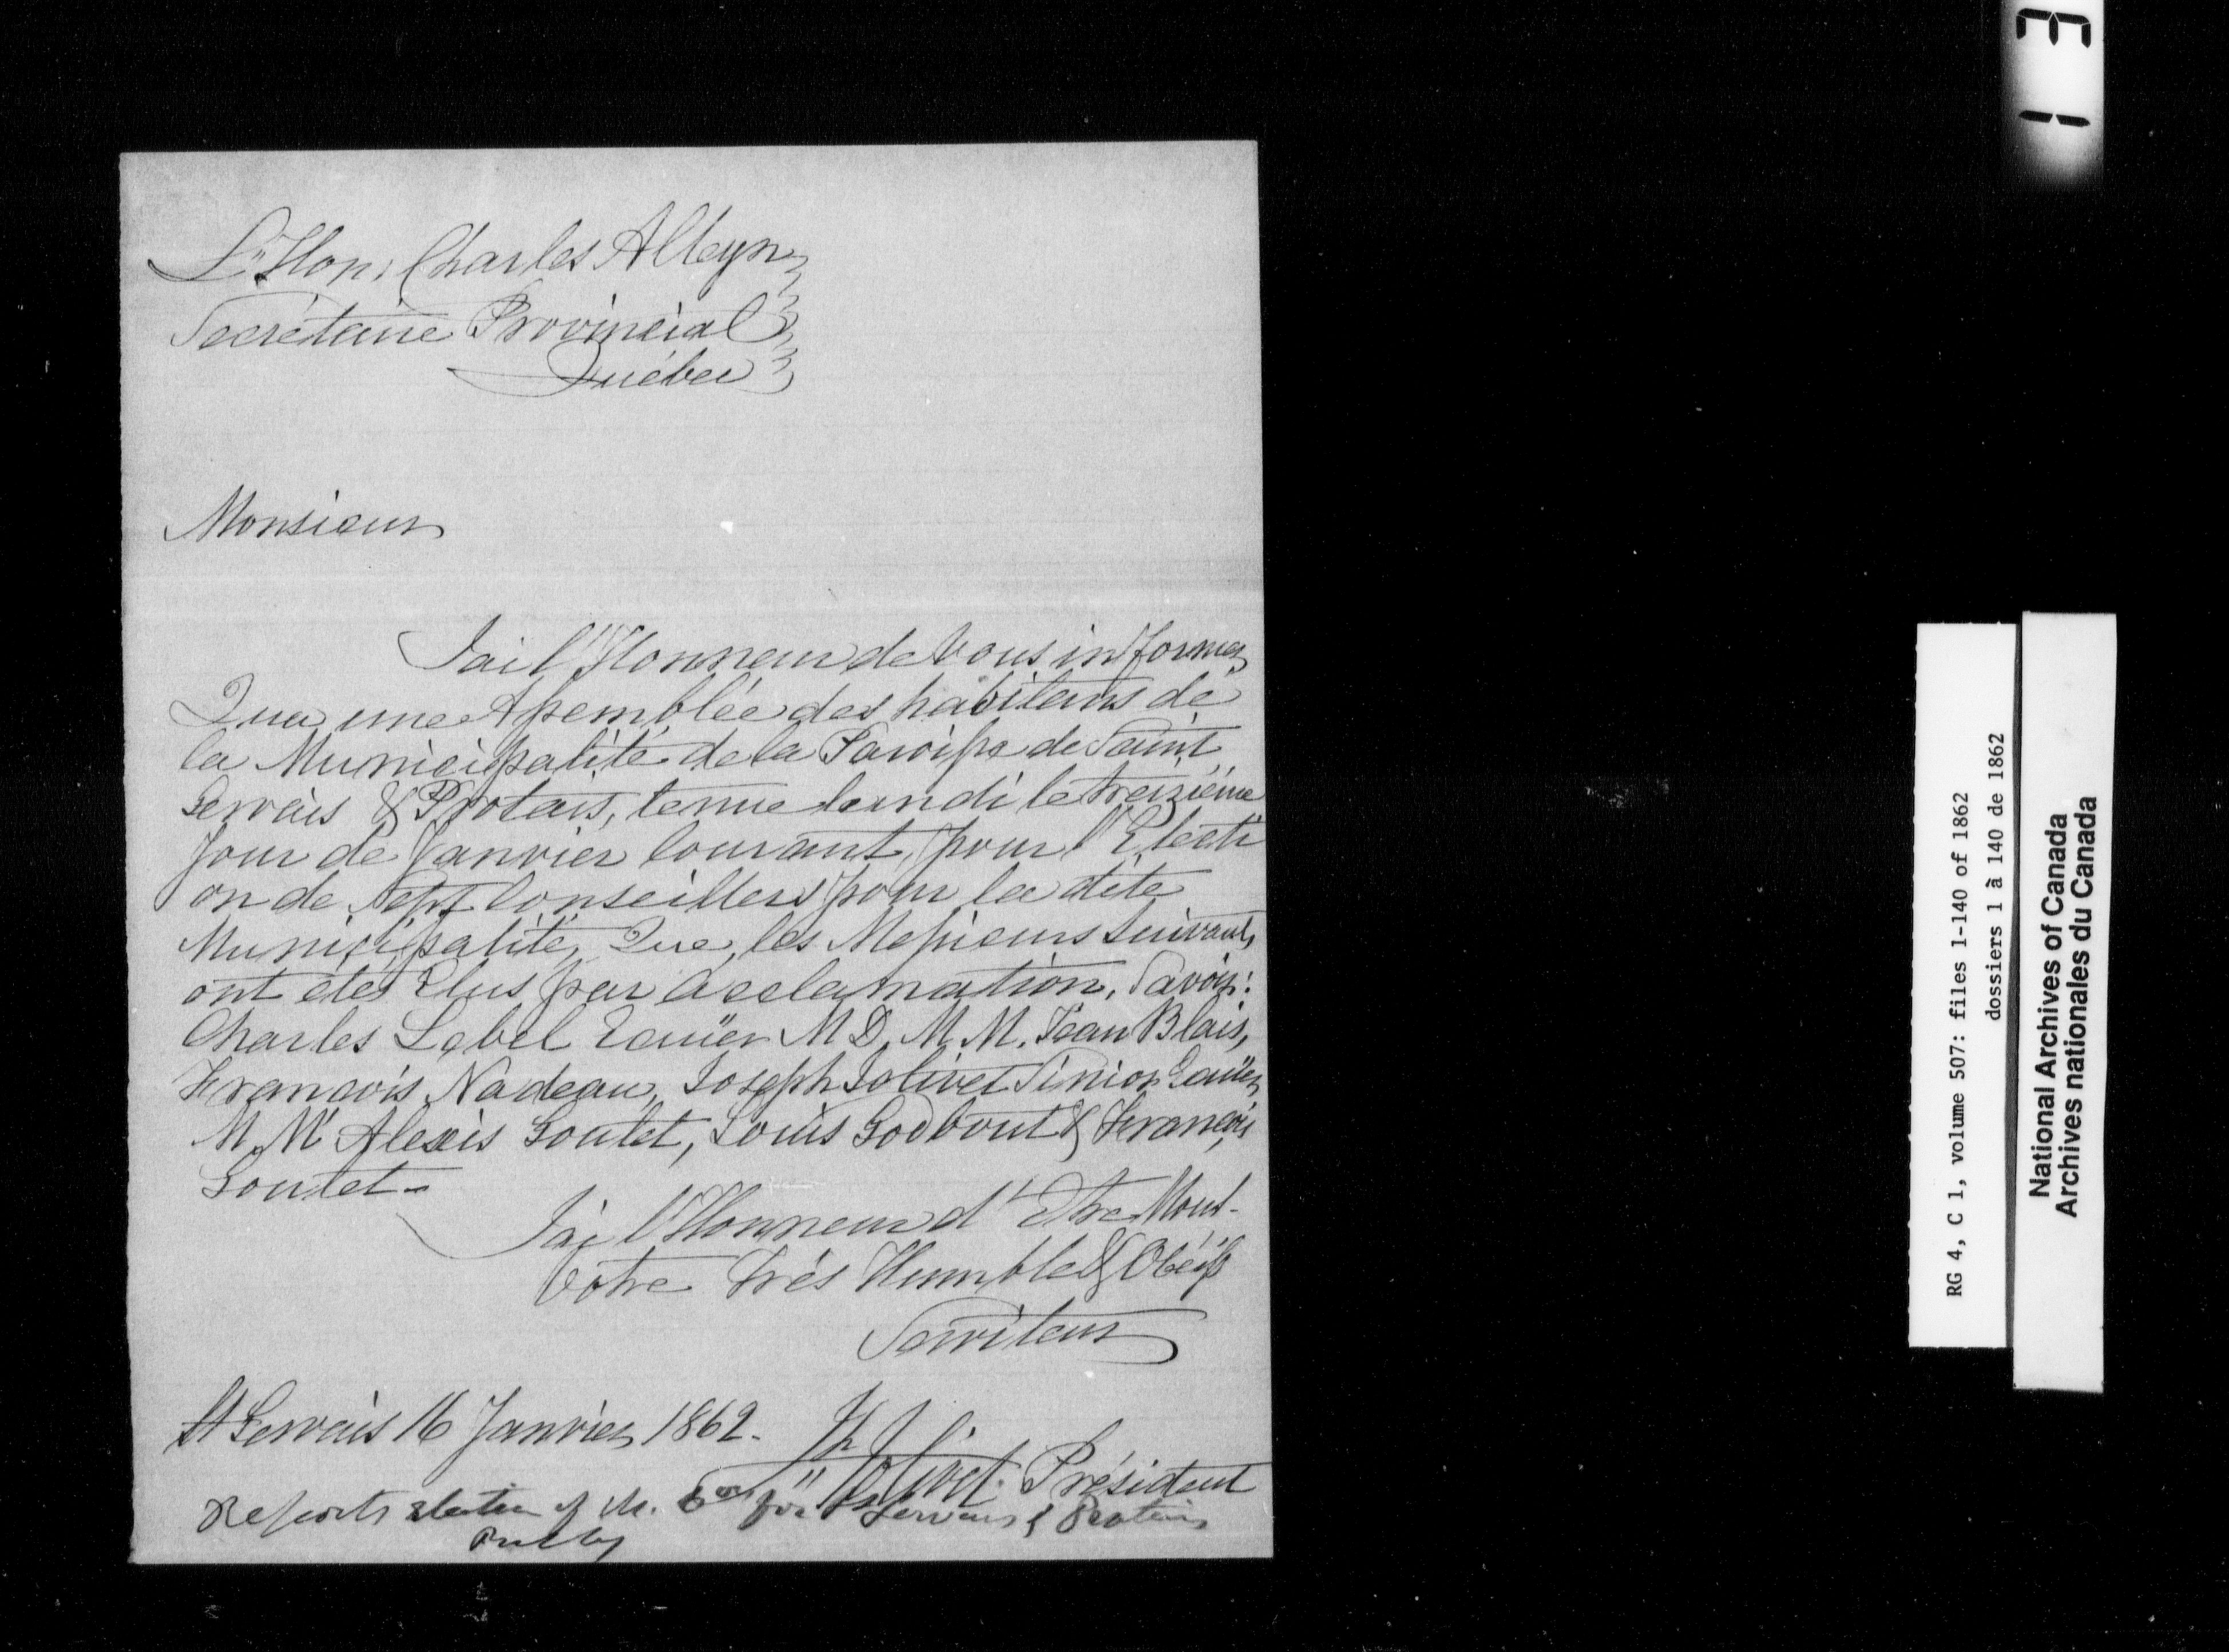 L'Hon. Charles Alleyn
Secrétaire Provincial
Québec
Monsieur
J'ai l'Honneur de Vous informer
Qu'a une Assemblée des habitans de
la Municipalité de la Paroisse de Saint
Gervais & Protais, tenue lundi le treizième
Jour de Janvier Courant, pour l'Electi
on de Sept Conseillers pour la dite
Municipalité, Que, les Messieurs Suivants
ont étés Elus par Acclamation, Savoir:
Charles Lebel Ecuïer M D, M. M. Jean Blais,
François Nadeau, Joseph Jolivet Sinior Ecuïer,
M. Mr Alexis Goulet, Louis Godbout & François
Goulet -
J'ai l'Honneur d'Etre Monsr
Votre Très Humble & Obéiss
Serviteur
St Gervais 16 Janvier 1862.
Jh Jolivet. Président
Reports election of M. Cors for St Gervais & Protais
13
RG 4, C 1, volume 507: files 1-140 of 1862
dossiers 1 à 140 de 1862
National Archives of Canada
Archives nationales du Canada